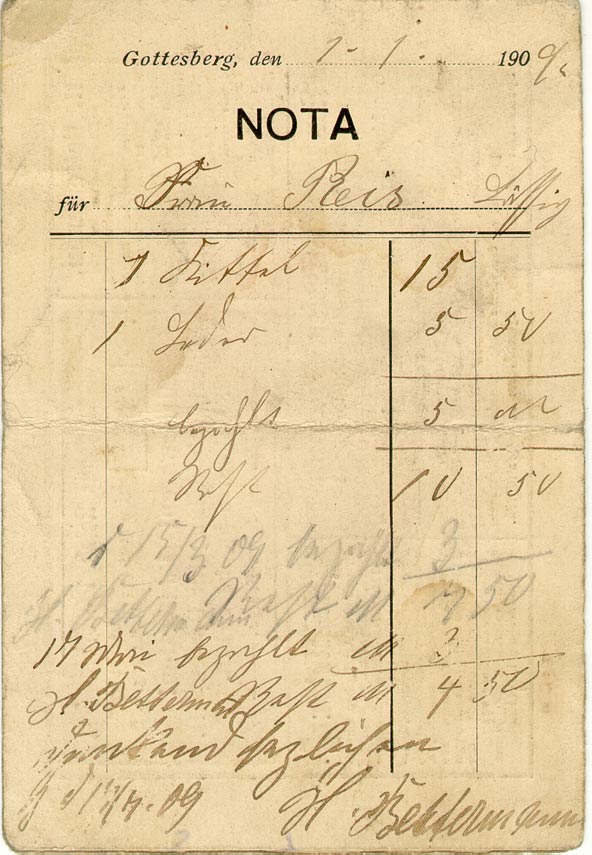 Gottesberg, den 7. 1. 1909
NOTA
für Frau Reis Lässig
1 Kittel 15
1 Leder 5 50
bezahlt 5 M
Rest 10 50
d 15/3 09 bezahlt 3
H. Bettermann Rest M 7 50
17 Mai bezahlt M 3
H. Bettermann Rest M 4 50
dankend
09
H. Bettermann